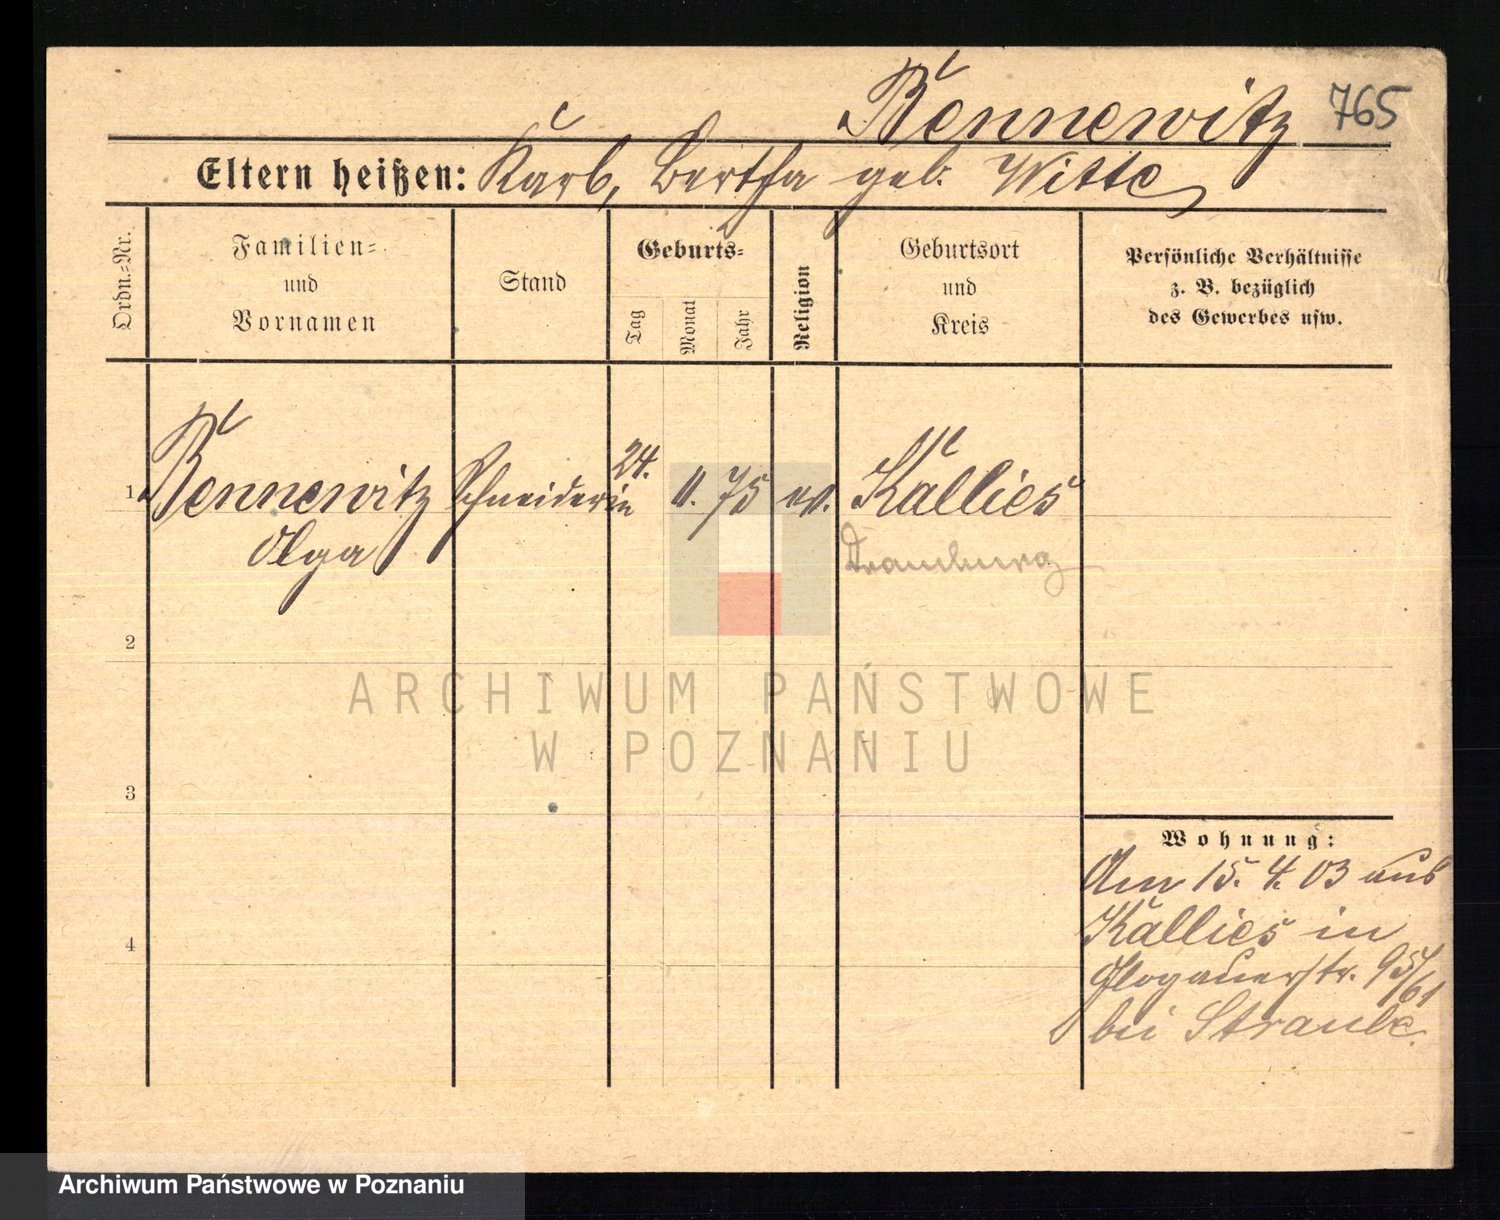 Bennewitz 765
Eltern heißen: Karl, Bertha geb. Witte
Ordn.-Nr.
Familien-
und
Vornamen
Stand
Geburts-
Tag
Monat
Jahr
Religion
Geburtsort
und
Kreis
Persönliche Verhältnisse
z. B. bezüglich
des Gewerbes usw.
1. Bennewitz Schneiderin 24. 11. 75 ev. Kallies
Olga Dramburg
2
ARCHIWUM PAŃSTWOWE
W POZNANIU
3
Wohnung:
Am 15. 4. 03 aus
Kallies in
4
Glogauerstr. 95/61
bei Straube.
Archiwum Państwowe w Poznaniu